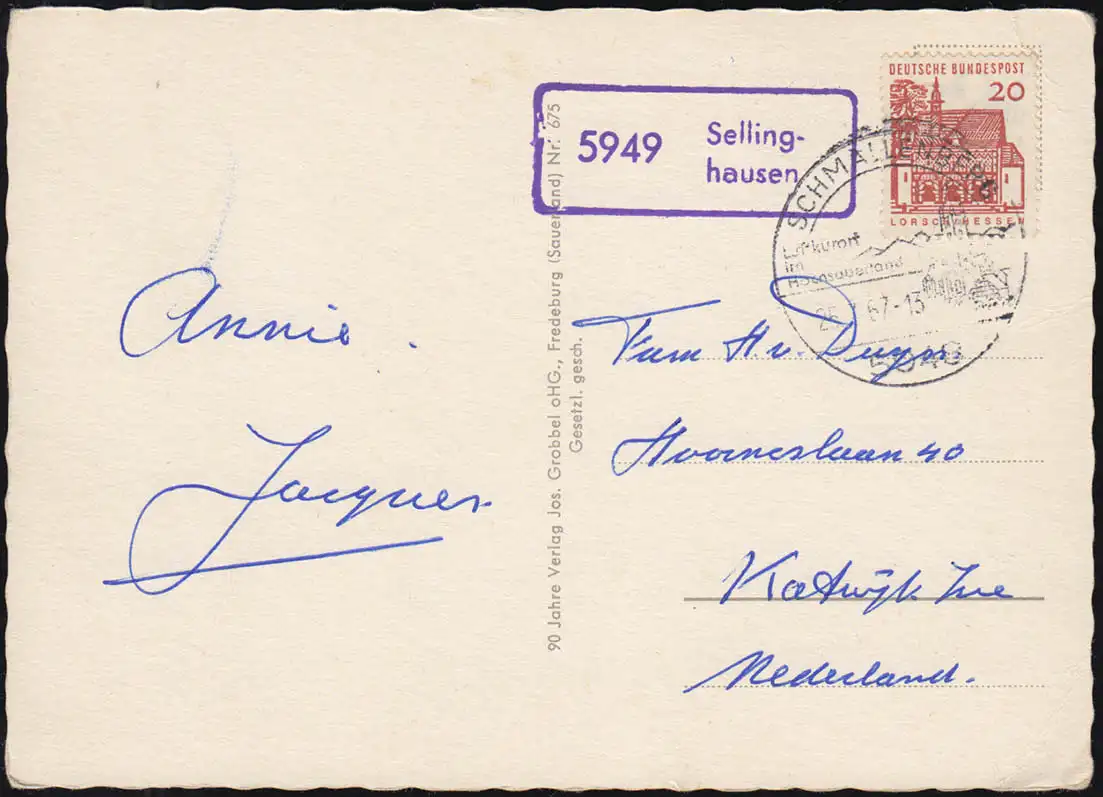 DEUTSCHE BUNDESPOST
20
LORSCH HESSEN
5949 Selling-
hausen
SCHMALLENBERG
Luftkurort
im
Hochsauerland
67-13
Annie.
Jacques
90 Jahre Verlag Jos. Grobbel oHG., Fredeburg (Sauerland) Nr. 675
Gesetzl. gesch.
Fam H. v. Duyn
Hoorneslaan 40
Katwijk Zee
Nederland.